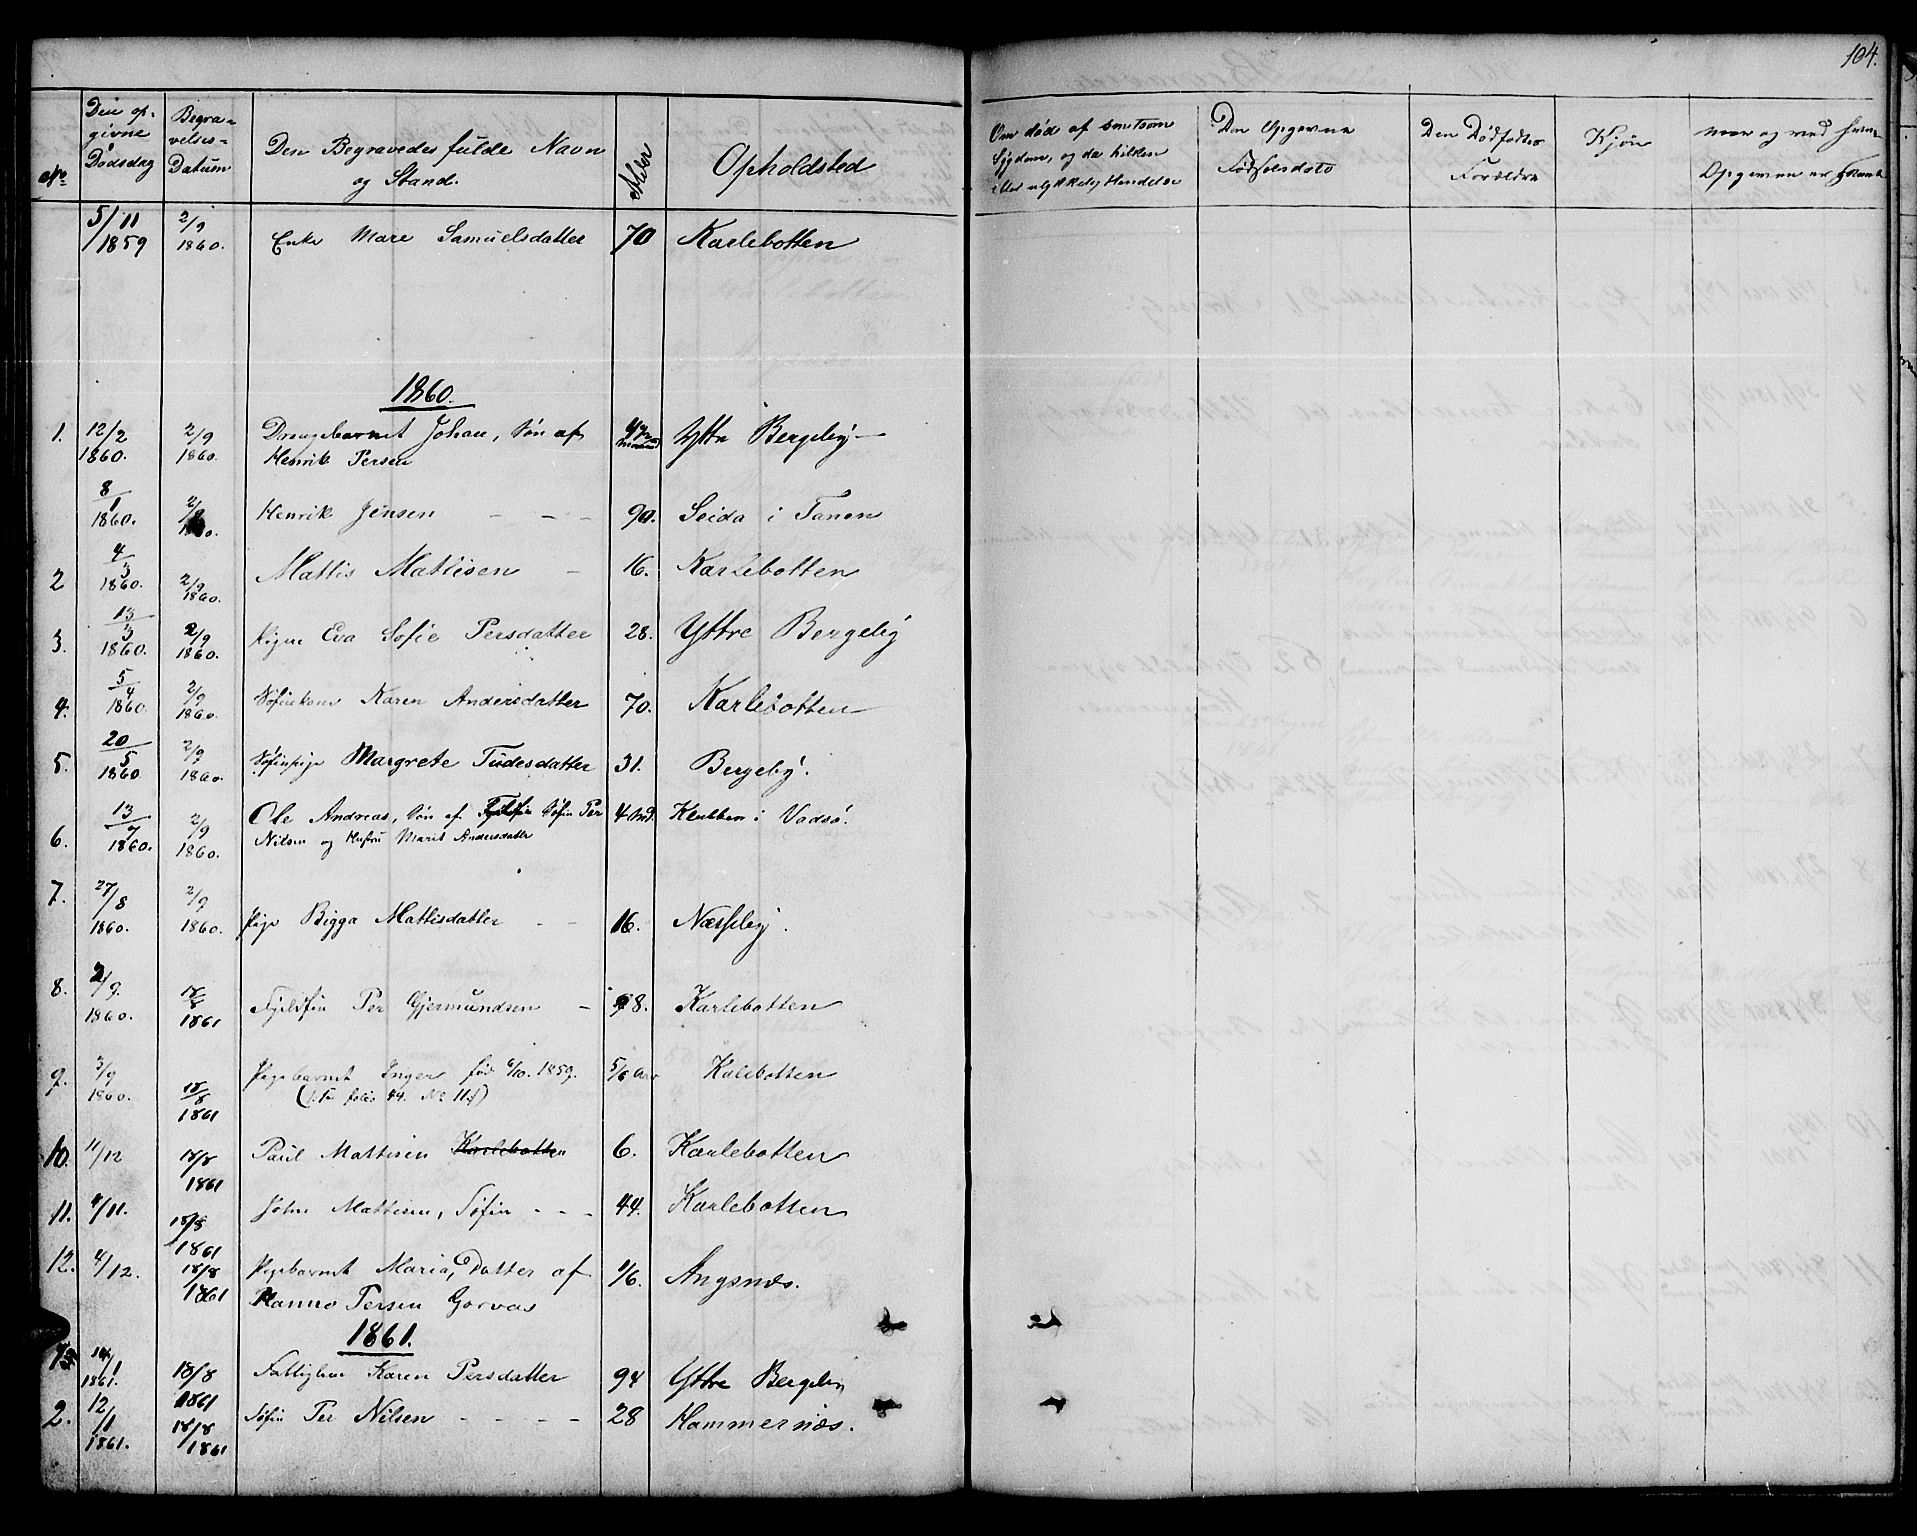 104.
No
Den op-
givne
Dødsdag
Begra-
velses-
Datum
Den Begravedes fulde Navn
og Stand.
Alder
Opholdsted
Om død af smitsom
Sygdom, og da hvilken
eller ulykkelig Hændelse
Den Opgevne
Fødselssted
Den Dødfødtes
Forældre
Kjøn
naar og ved hvem
Opgevne er
5/11 1859 2/9 1860. Enke Mare Samuelsdatter 70 Karlebotten
1860.
1. 12/2 1860. 2/9 1860. Drengebarnet Johan, Søn af
Henrik Persen Yttre Bergeby
8/1 1860. 2/9 1860. Henrik Jensen - - - 90. Seida i Tanen
2 4/3 1860. 2/9 1860. Mattis Mattisen - 16. Karlebotten
3. 13/3 1860. 2/9 1860. Pigen Eva Sofie Persdatter 28. Yttre Bergeby
4. 5/4 1860. 2/9 1860. Søfinkone Karen Andersdatter 70. Karlebotten
5. 20/5 1860 2/9 1860. Søfinpige Margrete Tudesdatter 31. Bergeby.
6. 13/7 1860. 2/9 1860. Ole Andreas, Søn af Fjeldfin Søfin Per
Nilsen og Hustru Marit Andersdatter 4 Md. Klubben i Vadsø.
7. 27/8 1860. 2/9 1860. Pige Bigga Mattisdatter - - 16. Næsseby.
8. 2/9. 1860. 18/8 1861 Fjeldfin Per Gjermundsen - 98. Karlebotten
9. 3/9 1860. 18/8 1861 Pigebarnet Inger fød 6/10. 1859.
5/6 Aar Kalebotten
(folio 44. No 11)
10. 11/12 18/8 1861 Paul Mattisen Karlebotten 6. Karlebotten
11. 4/11. 18/8 1861 John Mattisen, Søfin - - - 44. Karlebotten
12. 4/12. 18/8 1861 Pigebarnet Maria, Datter af
Hanno Persen Gorvas 1/6. Angsnæs.
1861.
1861. 18/8 1861 Karen Persdatter 94 Yttre Bergeby
2. 12/1 1861. 18/8 1861 Søfin Per Nilsen - - - - 28 Hammernæs.